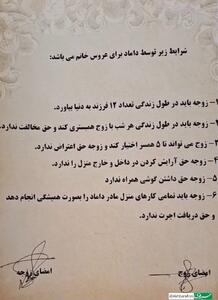 شرایط زیر توسط داماد برای عروس خانم می باشد:
۱- زوجه باید در طول زندگی تعداد ۱۲ فرزند به دنیا بیاورد.
۲- زوجه باید در طول زندگی هر شب با زوج همبستری کند و حق مخالفت ندارد.
۳- زوج می تواند تا ۵ همسر اختیار کند و زوجه حق اعتراض ندارد.
۴- زوجه حق آرایش کردن در داخل و خارج منزل را ندارد.
۵- زوجه حق داشتن گوشی همراه ندارد
۶- زوجه باید تمامی کارهای منزل مادر داماد را بصورت همیشگی انجام دهد
و حق دریافت اجرت ندارد.
امضای زوج
امضای زوجه